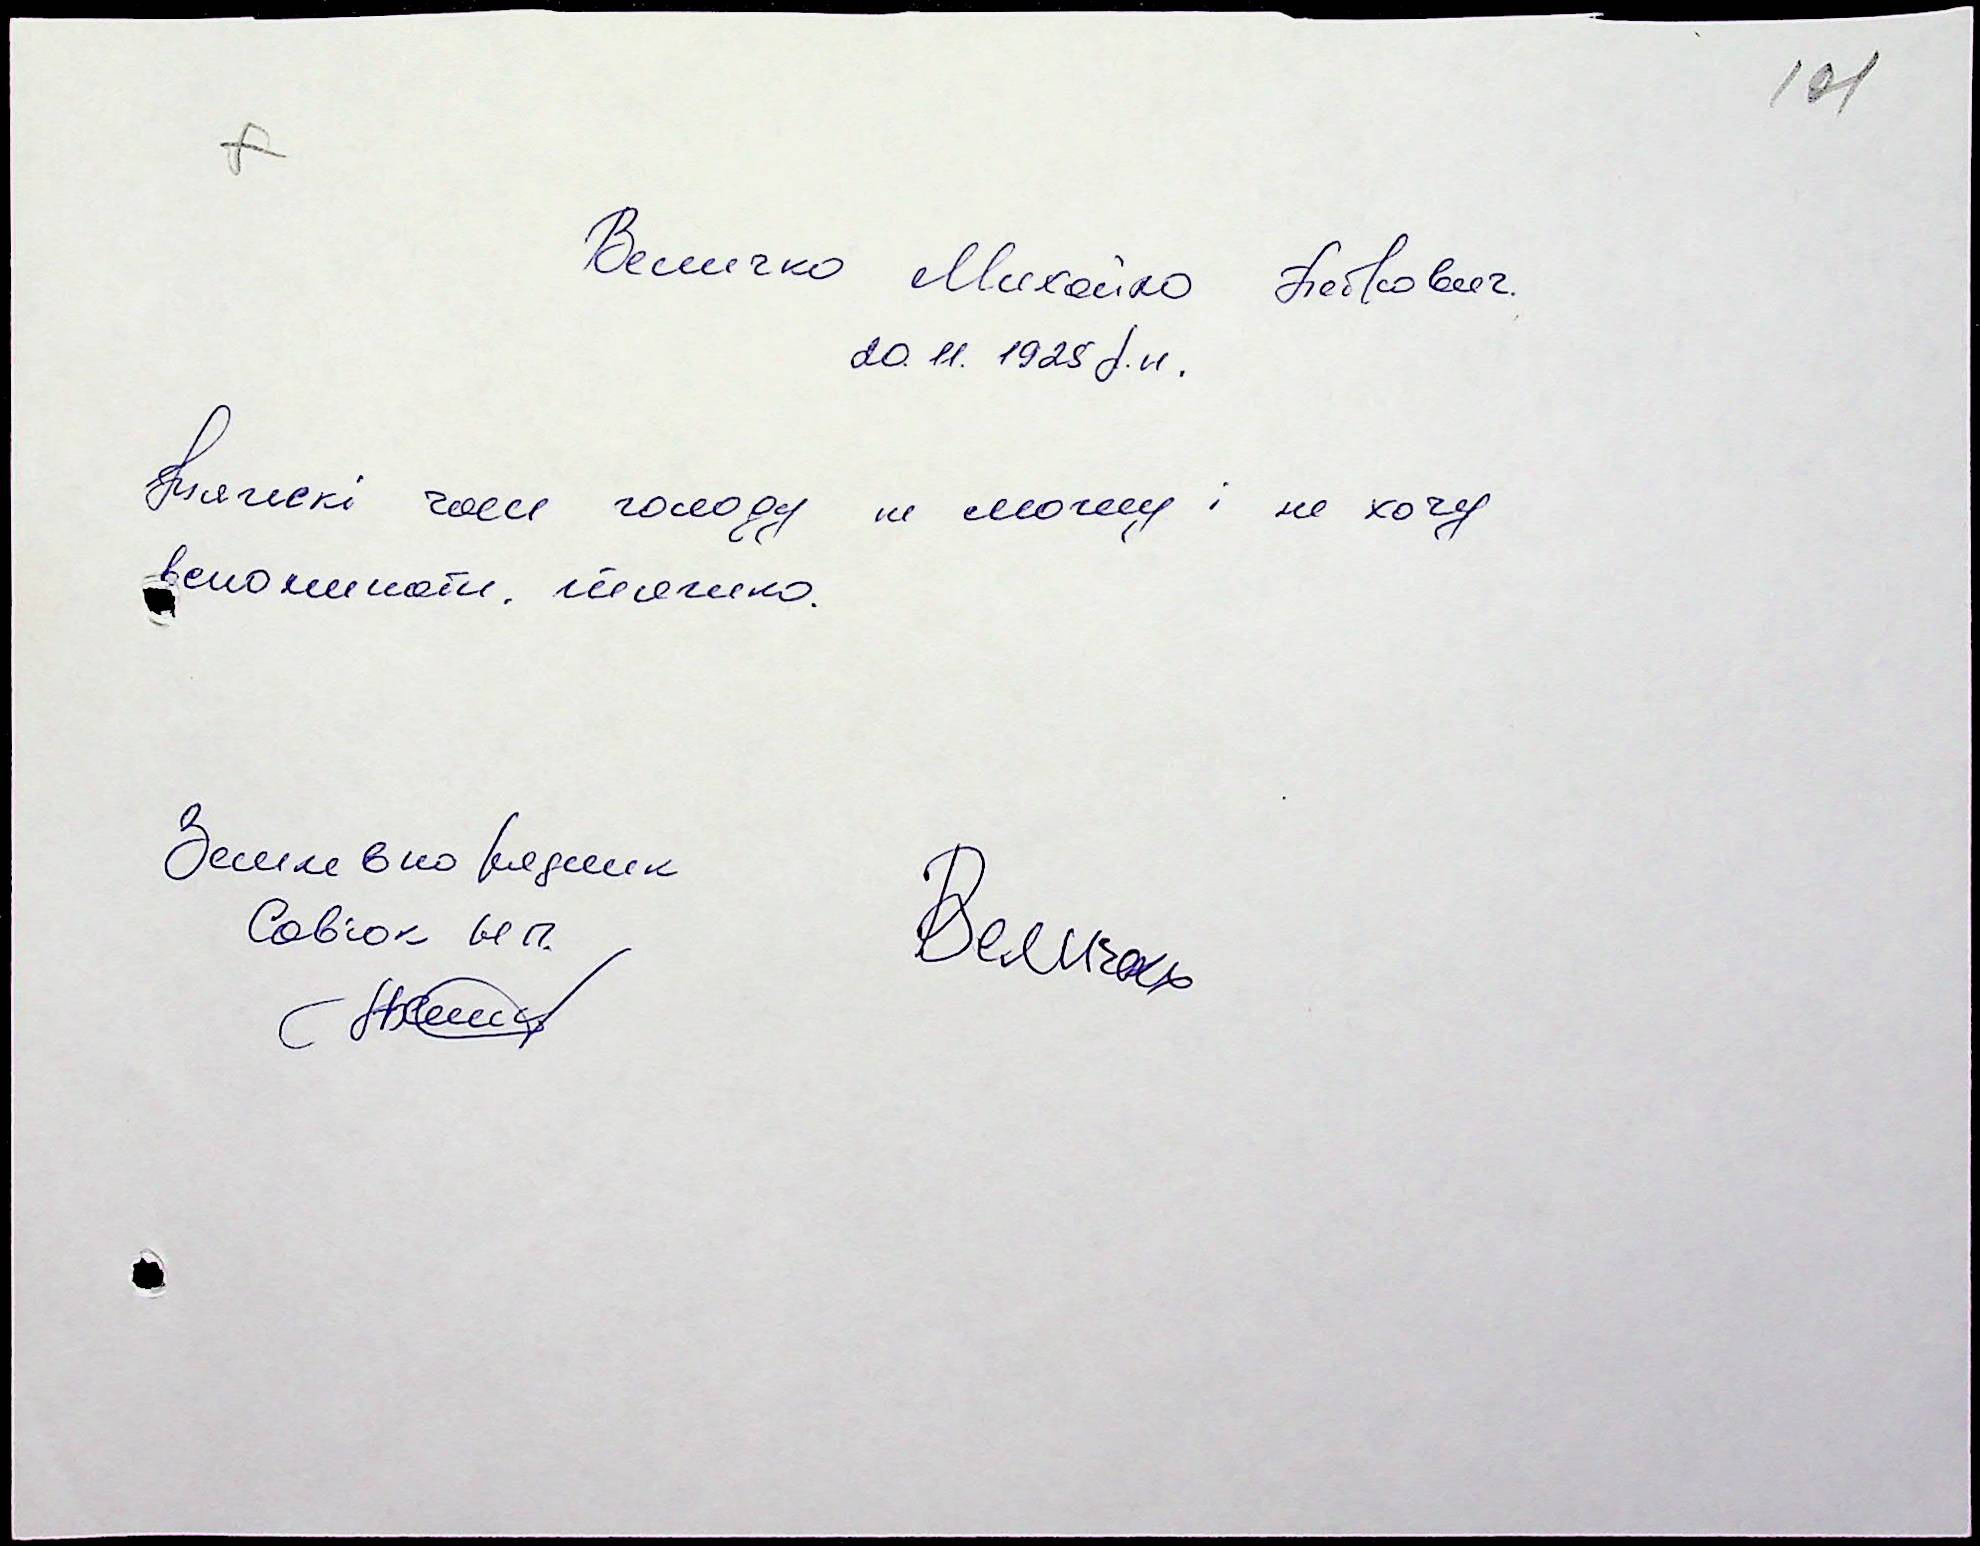 101
Величко Михайло Петрович.
20.11.1925 р.н.
Тяжскі часи голоду не можу і не хочу
вспоминати. тяжко.
Землевпорядник
Савіюк Н.П.
Величко